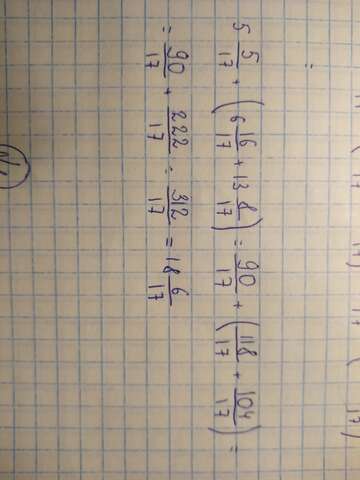 5 5/17 + (6 16/17 + 13 8/17) = 90/17 + (118/17 + 104/17) =
= 90/17 + 222/17 = 312/17 = 18 6/17